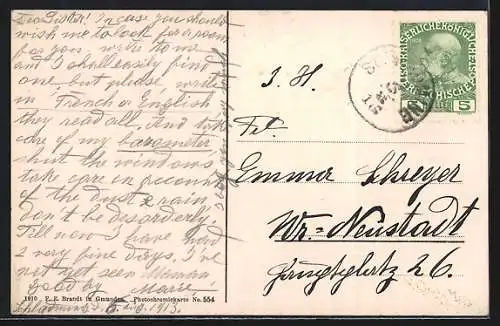 Dear Sister! In case you should
wish me to look for a room
for you, write to me
and I shall easily find
one but please, write
in French or English
they read all. And take
care of my barometer
shut the windows
take care in account
of the dust & rain,
don't be disorderly.
Till now I have had
2 very fine days. I've
not yet seen Mama
good by Marie
6. Aug. 1913.
1910 P. E. Brandt in Gmunden. Photochromiekarte No. 554
KAISERLICHE KÖNIGLICHE
5
S. H.
Frl.
Emma Schreyer
Wr.-Neustadt
26.